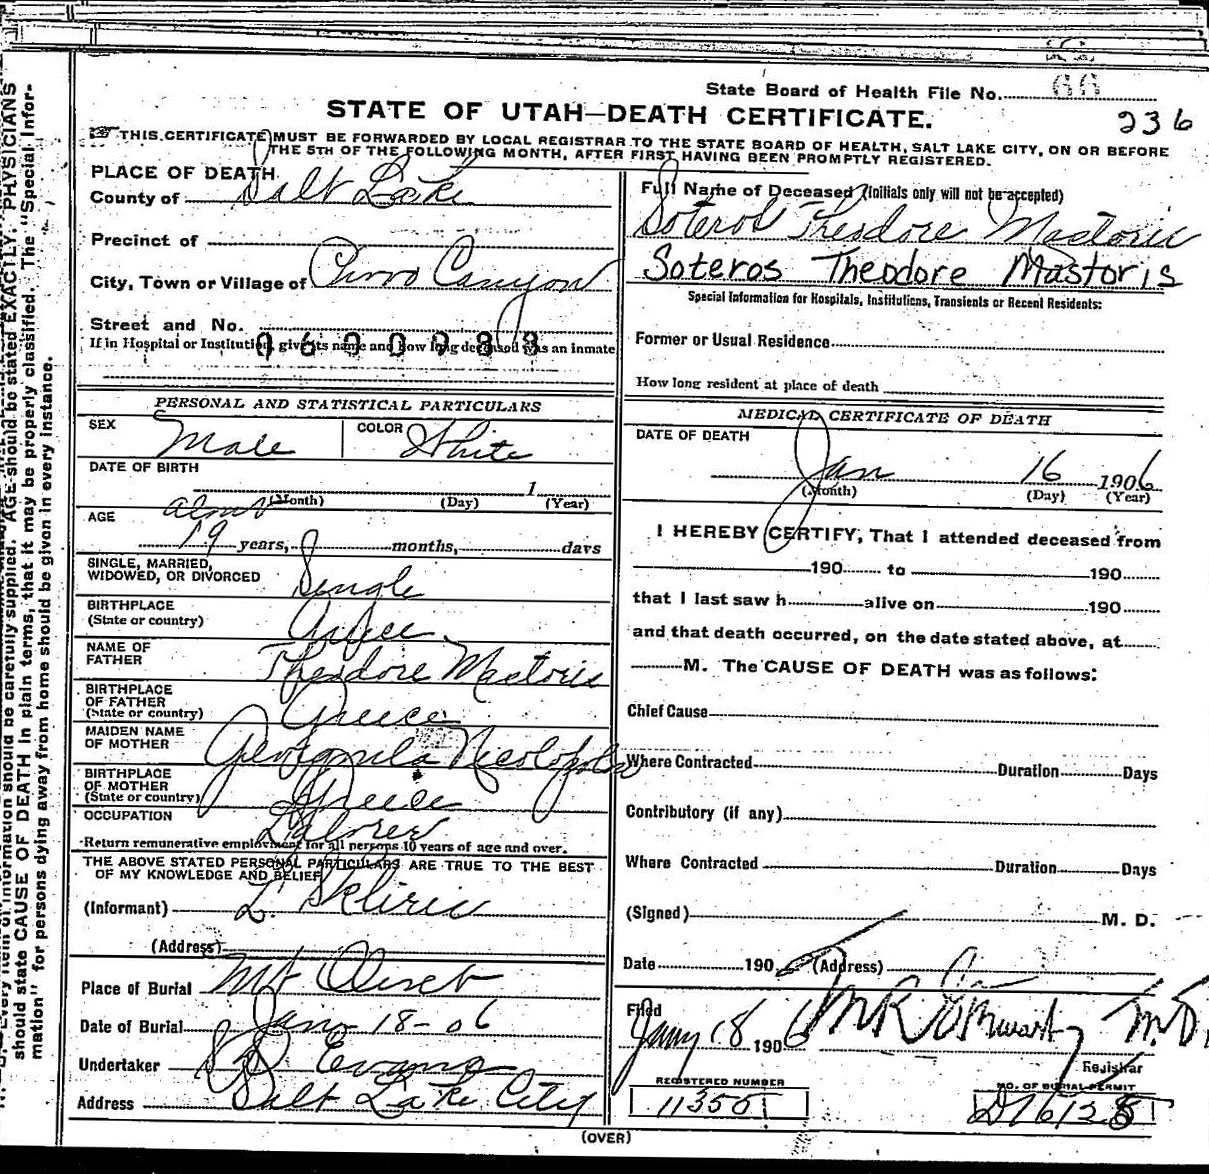 State Board of Health File No. 66
STATE OF UTAH—DEATH CERTIFICATE.
236
THIS CERTIFICATE MUST BE FORWARDED BY LOCAL REGISTRAR TO THE STATE BOARD OF HEALTH, SALT LAKE CITY, ON OR BEFORE
THE 5TH OF THE FOLLOWING MONTH, AFTER FIRST HAVING BEEN PROMPTLY REGISTERED.
PLACE OF DEATH
County of Salt Lake
Precinct of
City, Town or Village of Canyon
Street and No.
If in Hospital or Institution, give its name and how long deceased was an inmate
0600988
PERSONAL AND STATISTICAL PARTICULARS
SEX Male COLOR White
DATE OF BIRTH
1
(Month) (Day) (Year)
AGE
19 years, months, days
SINGLE, MARRIED,
WIDOWED, OR DIVORCED Single
BIRTHPLACE
(State or country)
NAME OF
FATHER Theodore Mastoris
BIRTHPLACE
OF FATHER
(State or country) Greece
MAIDEN NAME
OF MOTHER
BIRTHPLACE
OF MOTHER
(State or country) Greece
OCCUPATION Laborer
Return remunerative employment for all persons 10 years of age and over.
THE ABOVE STATED PERSONAL PARTICULARS ARE TRUE TO THE BEST
OF MY KNOWLEDGE AND BELIEF
(Informant) L. Skliris
(Address)
Place of Burial Mt Olivet
Date of Burial Jan 18-06
Undertaker Evans
Address Salt Lake City
Full Name of Deceased (Initials only will not be accepted)
Soteros Theodore Mastoris
Soteros Theodore Mastoris
Special Information for Hospitals, Institutions, Transients or Recent Residents:
Former or Usual Residence
How long resident at place of death
MEDICAL CERTIFICATE OF DEATH
DATE OF DEATH
Jan 16 1906
(Month) (Day) (Year)
I HEREBY CERTIFY, That I attended deceased from
190 to 190
that I last saw h alive on 190
and that death occurred, on the date stated above, at
M. The CAUSE OF DEATH was as follows:
Chief Cause
Where Contracted Duration Days
Contributory (if any)
Where Contracted Duration Days
(Signed) M. D.
Date 190 (Address)
Filed
Jany 18 1906 M.D.
Registrar
REGISTERED NUMBER
NO. OF BURIAL PERMIT
(OVER)
should state CAUSE OF DEATH in plain terms, that it may be properly classified. The "Special Infor-
mation" for persons dying away from home should be given in every instance.